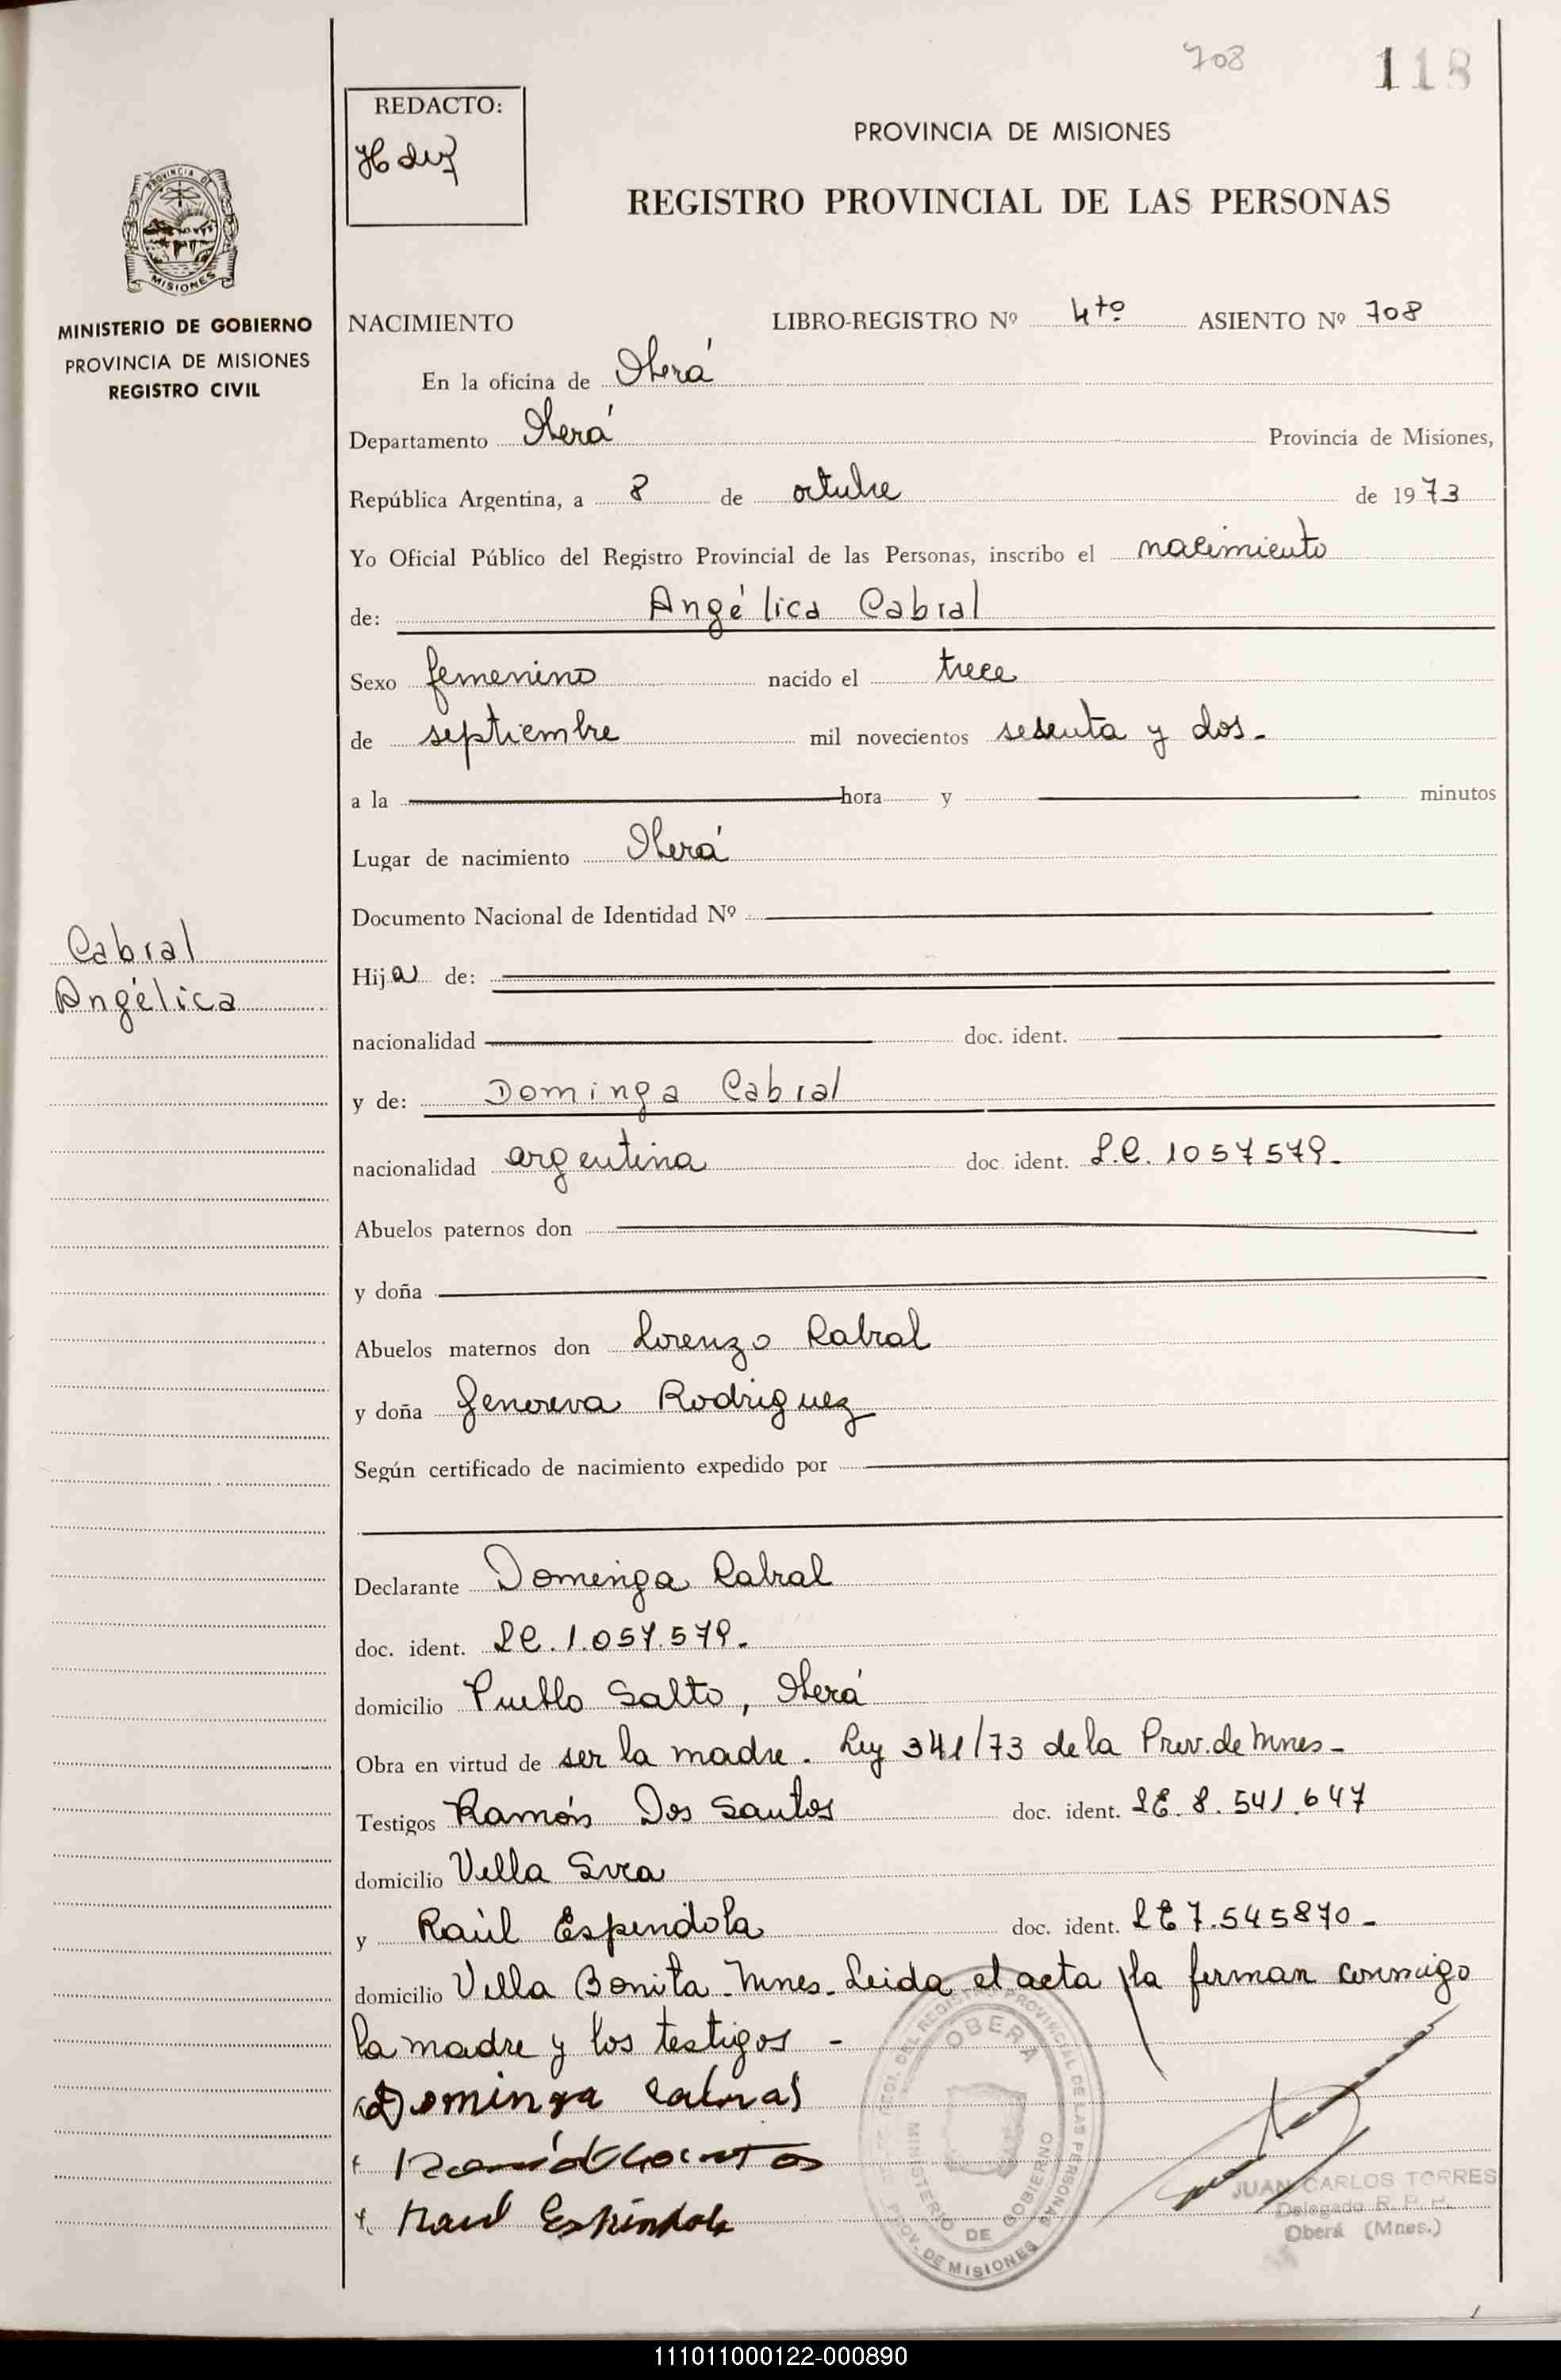 708
118
REDACTO:
PROVINCIA DE MISIONES
REGISTRO PROVINCIAL DE LAS PERSONAS
PROVINCIA DE
MISIONES
MINISTERIO DE GOBIERNO
PROVINCIA DE MISIONES
REGISTRO CIVIL
NACIMIENTO LIBRO-REGISTRO Nº 4to ASIENTO Nº 708
En la oficina de Oberá
Departamento Oberá Provincia de Misiones,
República Argentina, a 8 de octubre de 1973
Yo Oficial Público del Registro Provincial de las Personas, inscribo el nacimiento
de: Angélica Cabral
Sexo femenino nacido el trece
de septiembre mil novecientos sesenta y dos.
a la hora y minutos
Lugar de nacimiento Oberá
Documento Nacional de Identidad Nº
Cabral
Angélica
Hija de:
nacionalidad doc. ident.
y de: Dominga Cabral
nacionalidad argentina doc ident. L.C. 1057579.
Abuelos paternos don
y doña
Abuelos maternos don Lorenzo Cabral
y doña Genoveva Rodriguez
Según certificado de nacimiento expedido por
Declarante Dominga Cabral
doc. ident. LC. 1.057.579.
domicilio Pueblo Salto, Oberá
Obra en virtud de ser la madre. Ley 341/73 de la Prov. de Mnes-
Testigos Ramón Dos Santos doc. ident. LE. 8.541.647
domicilio Villa Svea
y Raúl Espindola doc. ident. LE 7.545870-
domicilio Villa Bonita. Mnes. Leida el acta la firman conmigo
la madre y los testigos -
Dominga Cabral
Raul Espindola
OBERA
MINISTERIO DE GOBIERNO
PROV. DE MISIONES
DEL REGISTRO PROVINCIAL DE LAS PERSONAS
JUAN CARLOS TORRES
Delegado R. P. P.
Oberá (Mnes.)
111011000122-000890